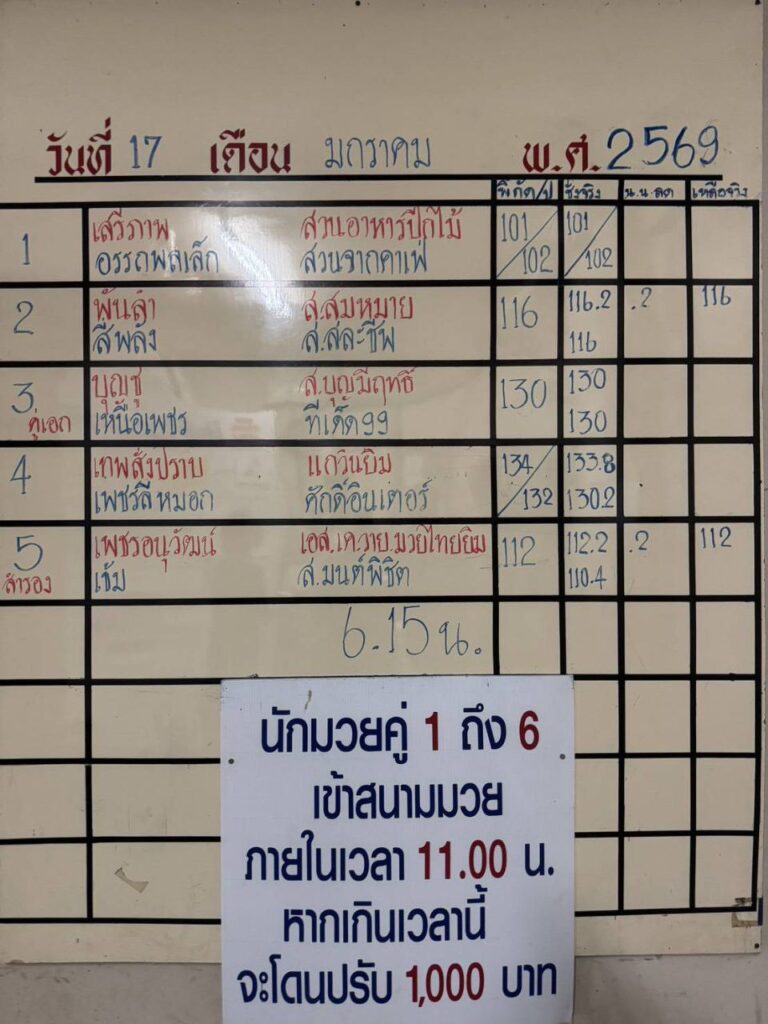 วันที่ 17 เดือน มกราคม พ.ศ. 2569
พิกัด/ป ชั่งจริง น.น.ลด เหลือจริง
1 เสรีภาพ สวนอาหารปีกไม้ 101/102 101/102
อรรถพลเล็ก สวนจากคาเฟ่
2 พันลำ ส.สมหมาย 116 116.2 .2 116
สีพลัง ส.สละชีพ 116
3 บุญชู ส.บุญมีฤทธิ์ 130 130
คู่เอก เหนือเพชร ทีเด็ด99 130
4 เทพสั่งปราบ แกวินยิม 134/132 133.8
เพชรสีหมอก ศักดิ์อินเตอร์ 130.2
5 เพชรอนุวัฒน์ เอส.เค.วาย.มวยไทยยิม 112 112.2 .2 112
สำรอง เข้ม ส.มนต์พิชิต 110.4
6.15 น.
นักมวยคู่ 1 ถึง 6
เข้าสนามมวย
ภายในเวลา 11.00 น.
หากเกินเวลานี้
จะโดนปรับ 1,000 บาท